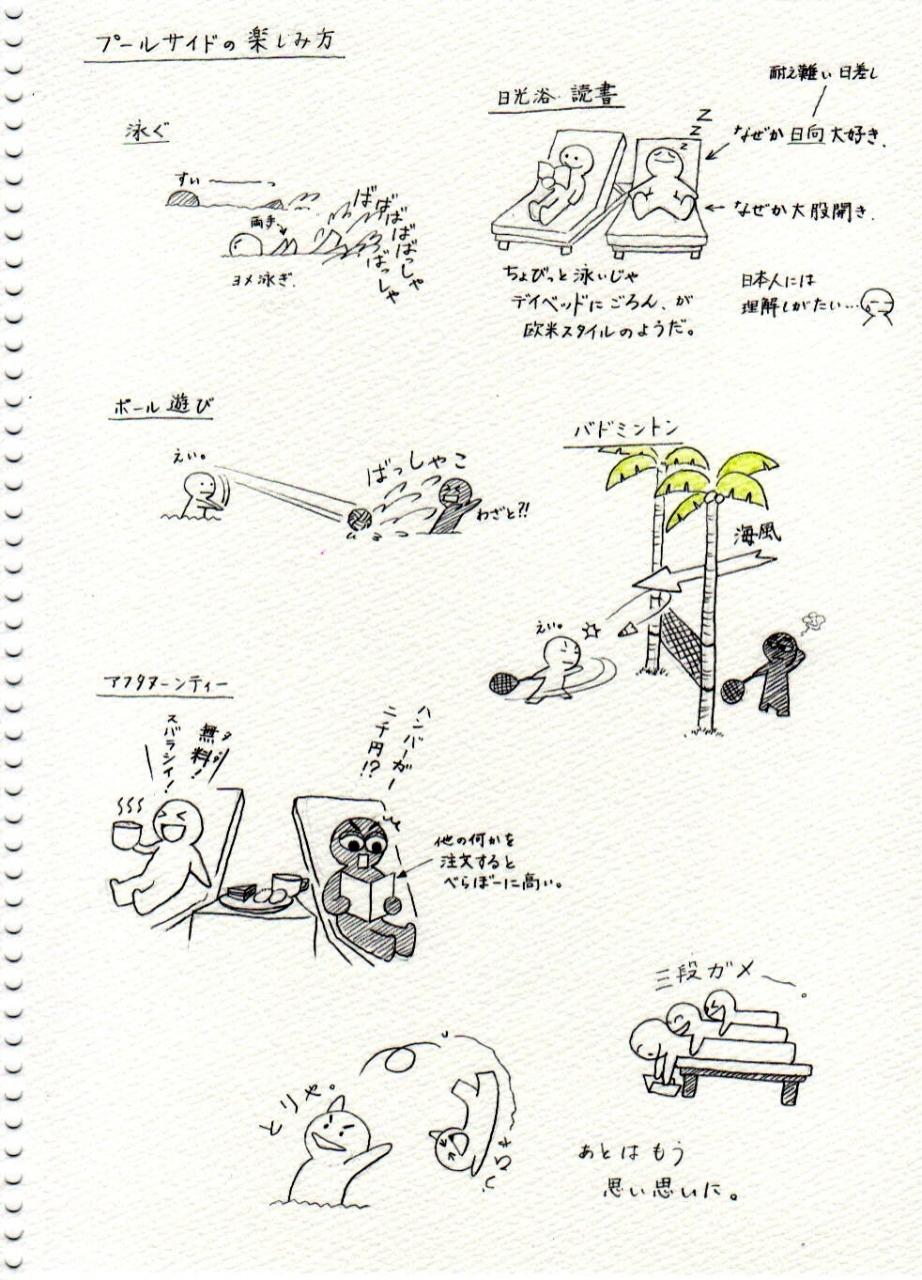 プールサイドの楽しみ方
泳ぐ
すい――っ
両手
ばばばばばっしゃ
ばっしゃ
ヨメ泳ぎ.
日光浴・読書
z z Z
耐え難い日差し
なぜか日向大好き.
なぜか大股開き.
ちょびっと泳いじゃ
デイベッドにごろん、が
欧米スタイルのようだ。
日本人には
理解しがたい…
ボール遊び
えい。
ばっしゃこ
わざと?!
バドミントン
海風
えい。
アフタヌーンティー
無料!
スバラシイ!
ハンバーガー
二千円!?
他の何かを
注文すると
べらぼーに高い。
三段ガメ〜。
とりゃ。
あとはもう
思い思いに。